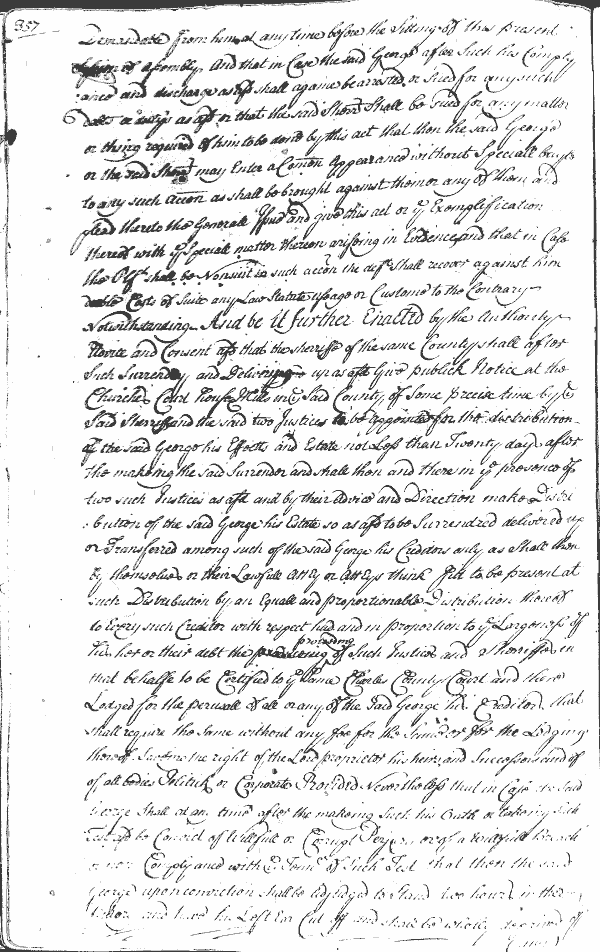 357
Demanded from him at any time before the Sitting of this present
of assembly. And that in Case the said George after such his Comply
ance and discharge as afd shall againe be arrested or sued for any such
debt or dutys as afd or that the said Sherr. shall be sued for any matter
or thing required of him to be done by this act that then the said George
or the said Sherr. may Enter a Comon Appearance without Speciall bayle
to any such accon as shall be brought against them or any of them and
plead thereto the Generall Issue and give this act or ye Exemplification
thereof with ye Speciall matter thereon arissing in Evidence and that in Case
the Plt. shall be Nonsuit in such accon the deft shall recover against him
double Costs of Suite any Law Statute usage or Custome to the Contrary
Notwithstanding. And be it further Enacted by the Authority
Advice and Consent afd that the sherriffe of the same County shall after
such Surrender and Delivery up as afd give publick Notice at the
Churches Court house Mills in ye Said County of some Precise time by ye
Said Sherriff and the said two Justices to be appointed for the distribution
of the said George his Effects and Estate not Less than Twenty days after
the making the said Surrender and shall then and there in ye presence of
two such Justices as afd and by their Advice and Direction make Distri
:bution of the said George his Estate so as afd to be Surrendred delivered up
or Transferred among such of the said George his Creditors only as Shall then
by themselves or their Lawfull Atty or Attys think fitt to be present at
such Distribution by an Equall and proportionable Distribution thereof
to Every such Creditor with respect had and in proportion to ye Largeness of
his her or their debt the proceeding of such Justices and Sherriffe in
that behalfe to be Certified to ye Same Charles County Court and there
Lodged for the perusall of all or any of the Said George his Creditors that
shall require the same without any fee for the same or for the Lodging
thereof Saveing the right of the Lord proprietor his heires and Successors and of
of all bodies Politick or Corporate Provided Nevertheless that in Case the Said
George shall at any time after the making such his Oath or takeing such
Test afd be Convict of Willfull or Corrupt Perjury or of a willfull breach
or non Complyance with ye of such Test that then the said
George upon conviction shall be adjudged to Stand two hours in the
and have his Left Ear Cut off and shall be wholly deprived of